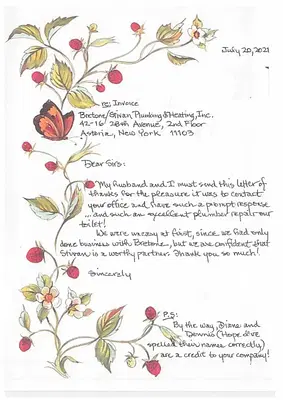 July 20, 2021
re: Invoice
Bretone/Stivan Plumbing & Heating, Inc.
42-16 28th Avenue, 2nd Floor
Astoria, New York 11103
Dear Sirs:
My husband and I must send this letter of
thanks for the pleasure it was to contact
your office and have such a prompt response
...and such an excellent plumber repair our
toilet!
We were uneasy at first, since we had only
done business with Bretone, but we are confident that
Stivan is a worthy partner. Thank you so much!
Sincerely
P.S:
By the way, Diane and
Dennis (Hope I've
spelled their names correctly)
are a credit to your company!